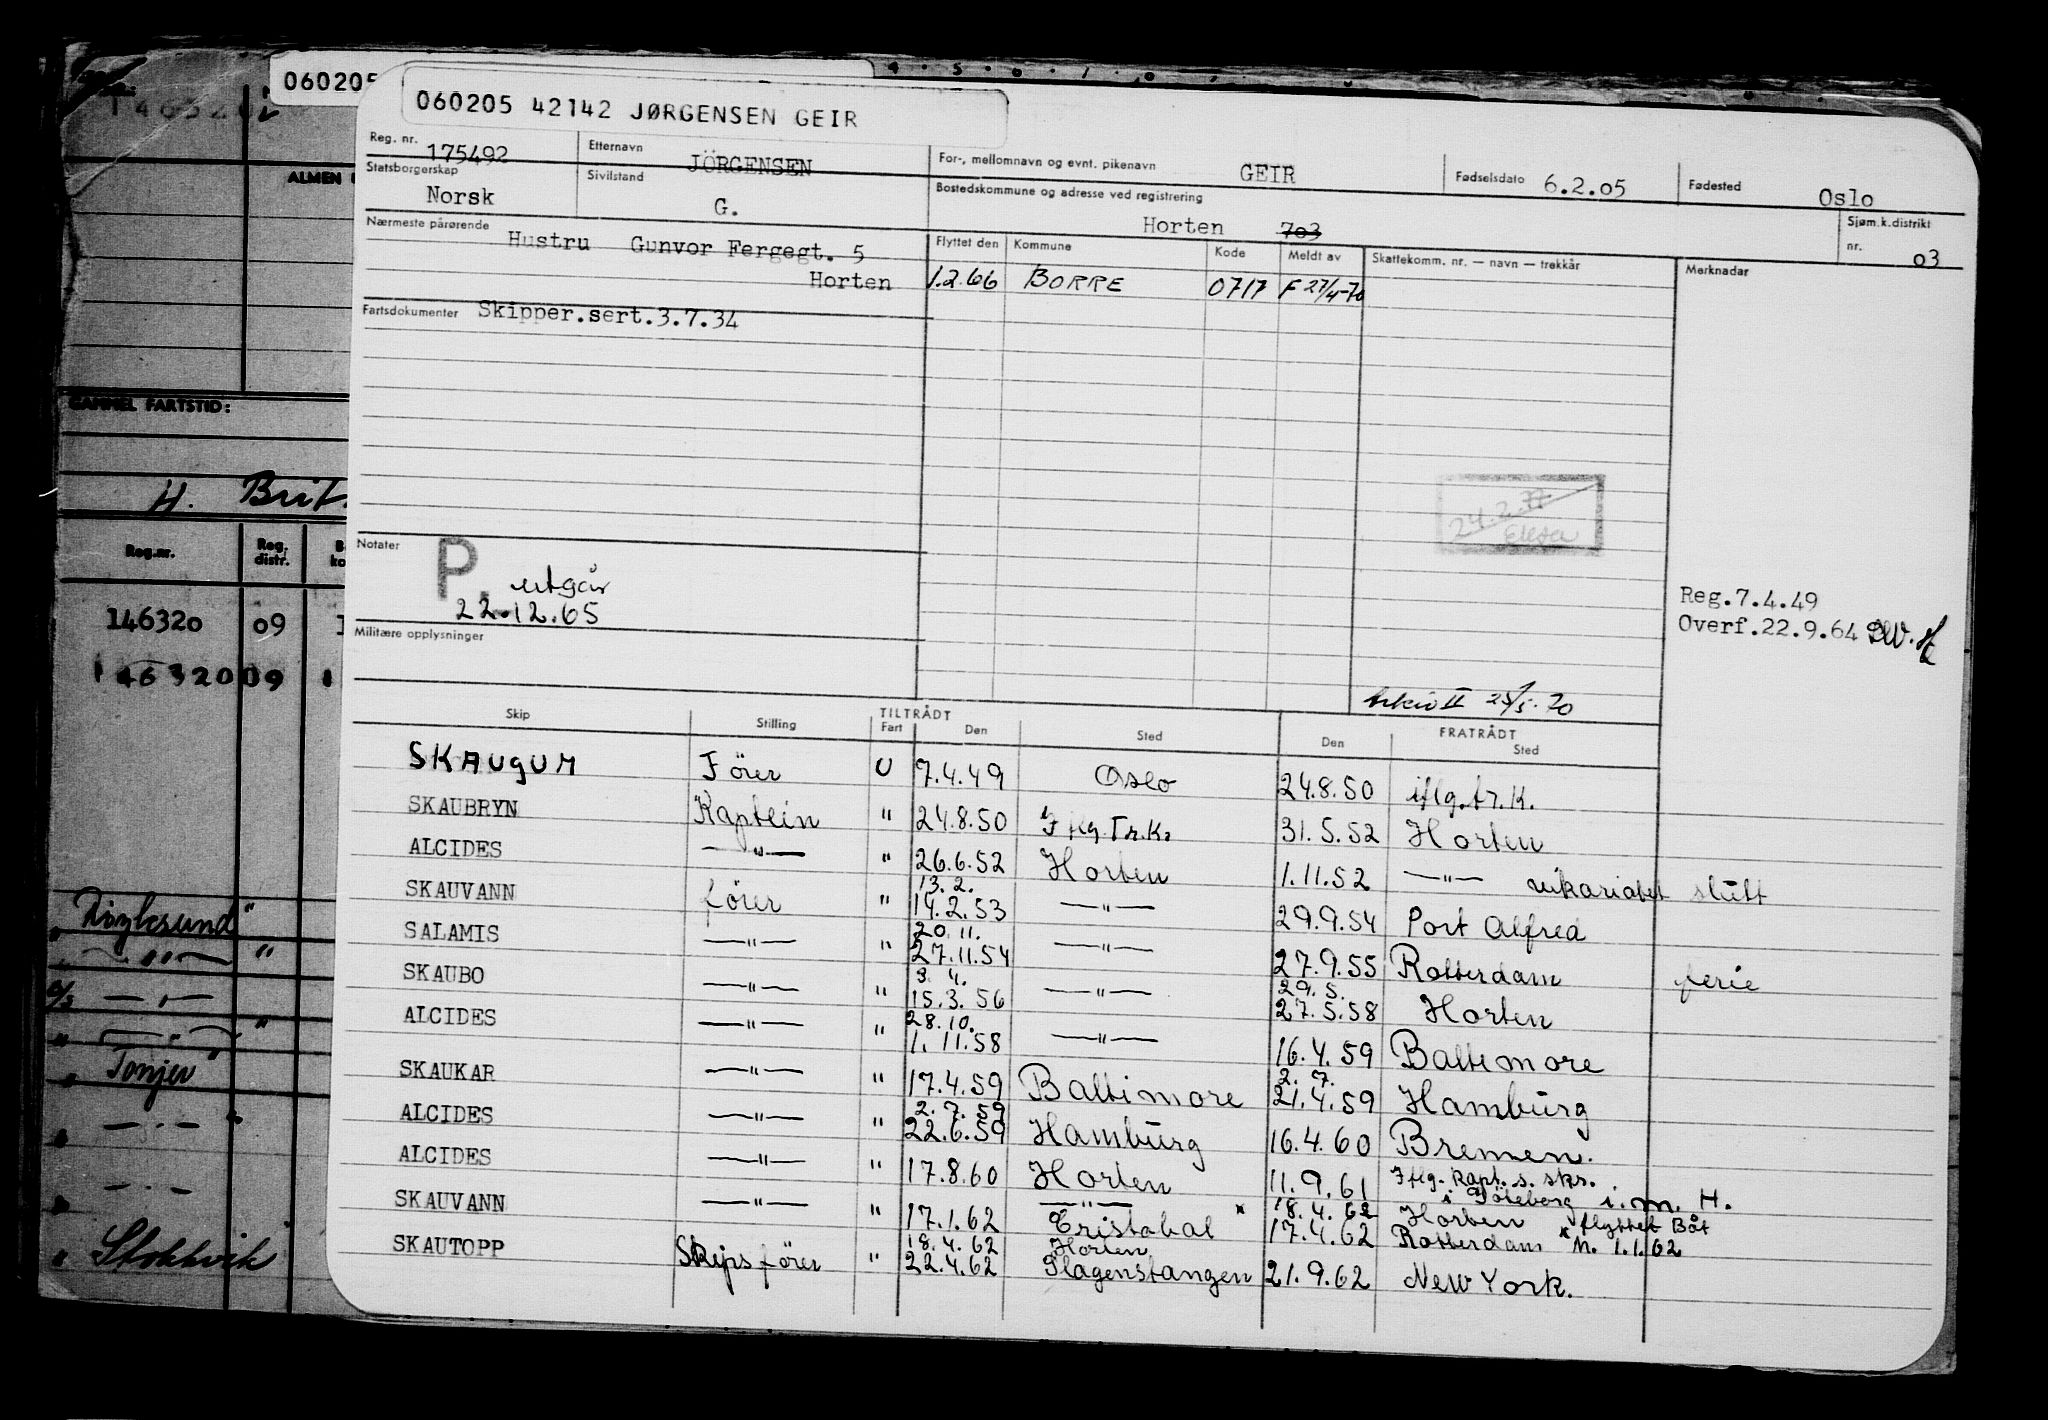 060205
060205 42142 JØRGENSEN GEIR
Reg. nr. 175492 Etternavn JÖRGENSEN For-, mellomnavn og evnt. pikenavn GEIR Fødselsdato 6.2.05 Fødested Oslo
Statsborgerskap Norsk Sivilstand G. Bostedskommune og adresse ved registrering Horten 703 Sjøm.k.distrikt nr. 03
Nærmeste pårørende Hustru Gunvor Fergegt. 5
Horten
Flyttet den Kommune Kode Meldt av Skattekomm. nr. — navn — trekkår Merknader
1.2.66 BORRE 0717 F 27/4-70
Fartsdokumenter Skipper.sert.3.7.34
24.2.77
Notater P. utgår
22.12.65
Militære opplysninger
Reg.7.4.49
Overf.22.9.64
Arkiv II 25/5.70
Skip Stilling TILTRÅDT FRATRÅDT
Fart Den Sted Den Sted
SKAUGUM Förer U 7.4.49 Oslo 24.8.50 iflg.tr.K.
SKAUBRYN Kaptein " 24.8.50 Iflg.Tr.K. 31.5.52 Horten
ALCIDES —"— " 26.6.52 Horten 1.11.52 —"— vikariatet slutt
13.2.
SKAUVANN förer " 14.2.53 —"— 29.9.54 Port Alfred
20.11.
SALAMIS —"— " 27.11.54 —"— 27.9.55 Rotterdam ferie
3.4. 29.5.
SKAUBO —"— " 15.3.56 —"— 27.5.58 Horten
28.10.
ALCIDES —"— " 1.11.58 —"— 16.4.59 Baltimore
2.7.
SKAUKAR —"— " 17.4.59 Baltimore 21.4.59 Hamburg
2.7.59
ALCIDES —"— " 22.6.59 Hamburg 16.4.60 Bremen.
ALCIDES —"— " 17.8.60 Horten 11.9.61 Iflg. Kapt. s. skr.
i Göteborg i. m. H.
—"— 18.4.62 Horten flyttet Båt
SKAUVANN —"— " 17.1.62 Cristobal x 17.4.62 Rotterdam x M. 1.1.62
18.4.62 Horten
SKAUTOPP Skipsförer " 22.4.62 Slagenstangen 21.9.62 New York.
146320
ALMEN
GAMMEL FARTSTID:
H. Brit.
Reg.nr. Reg. distr.
146320 09
146320 09
"
—"— "
—"—
—"— "
" Tonjer "
—"—
—"—
" Stokkvik